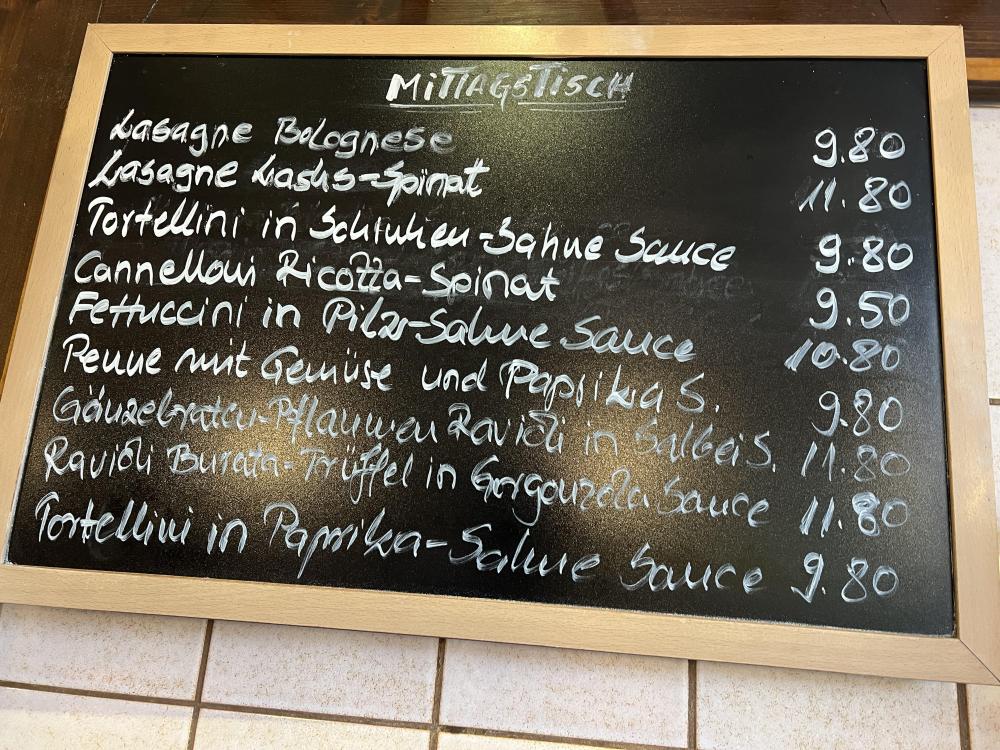 MITTAGSTISCH
Lasagne Bolognese 9.80
Lasagne Lachs-Spinat 11.80
Tortellini in Schinken-Sahne Sauce 9.80
Cannelloni Ricotta-Spinat 9.50
Fettuccini in Pilz-Sahne Sauce 10.80
Penne mit Gemüse und Paprika S. 9.80
Gänsebraten-Pflaumen Ravioli in Salbei S. 11.80
Ravioli Burata-Trüffel in Gorgonzola Sauce 11.80
Tortellini in Paprika-Sahne Sauce 9.80